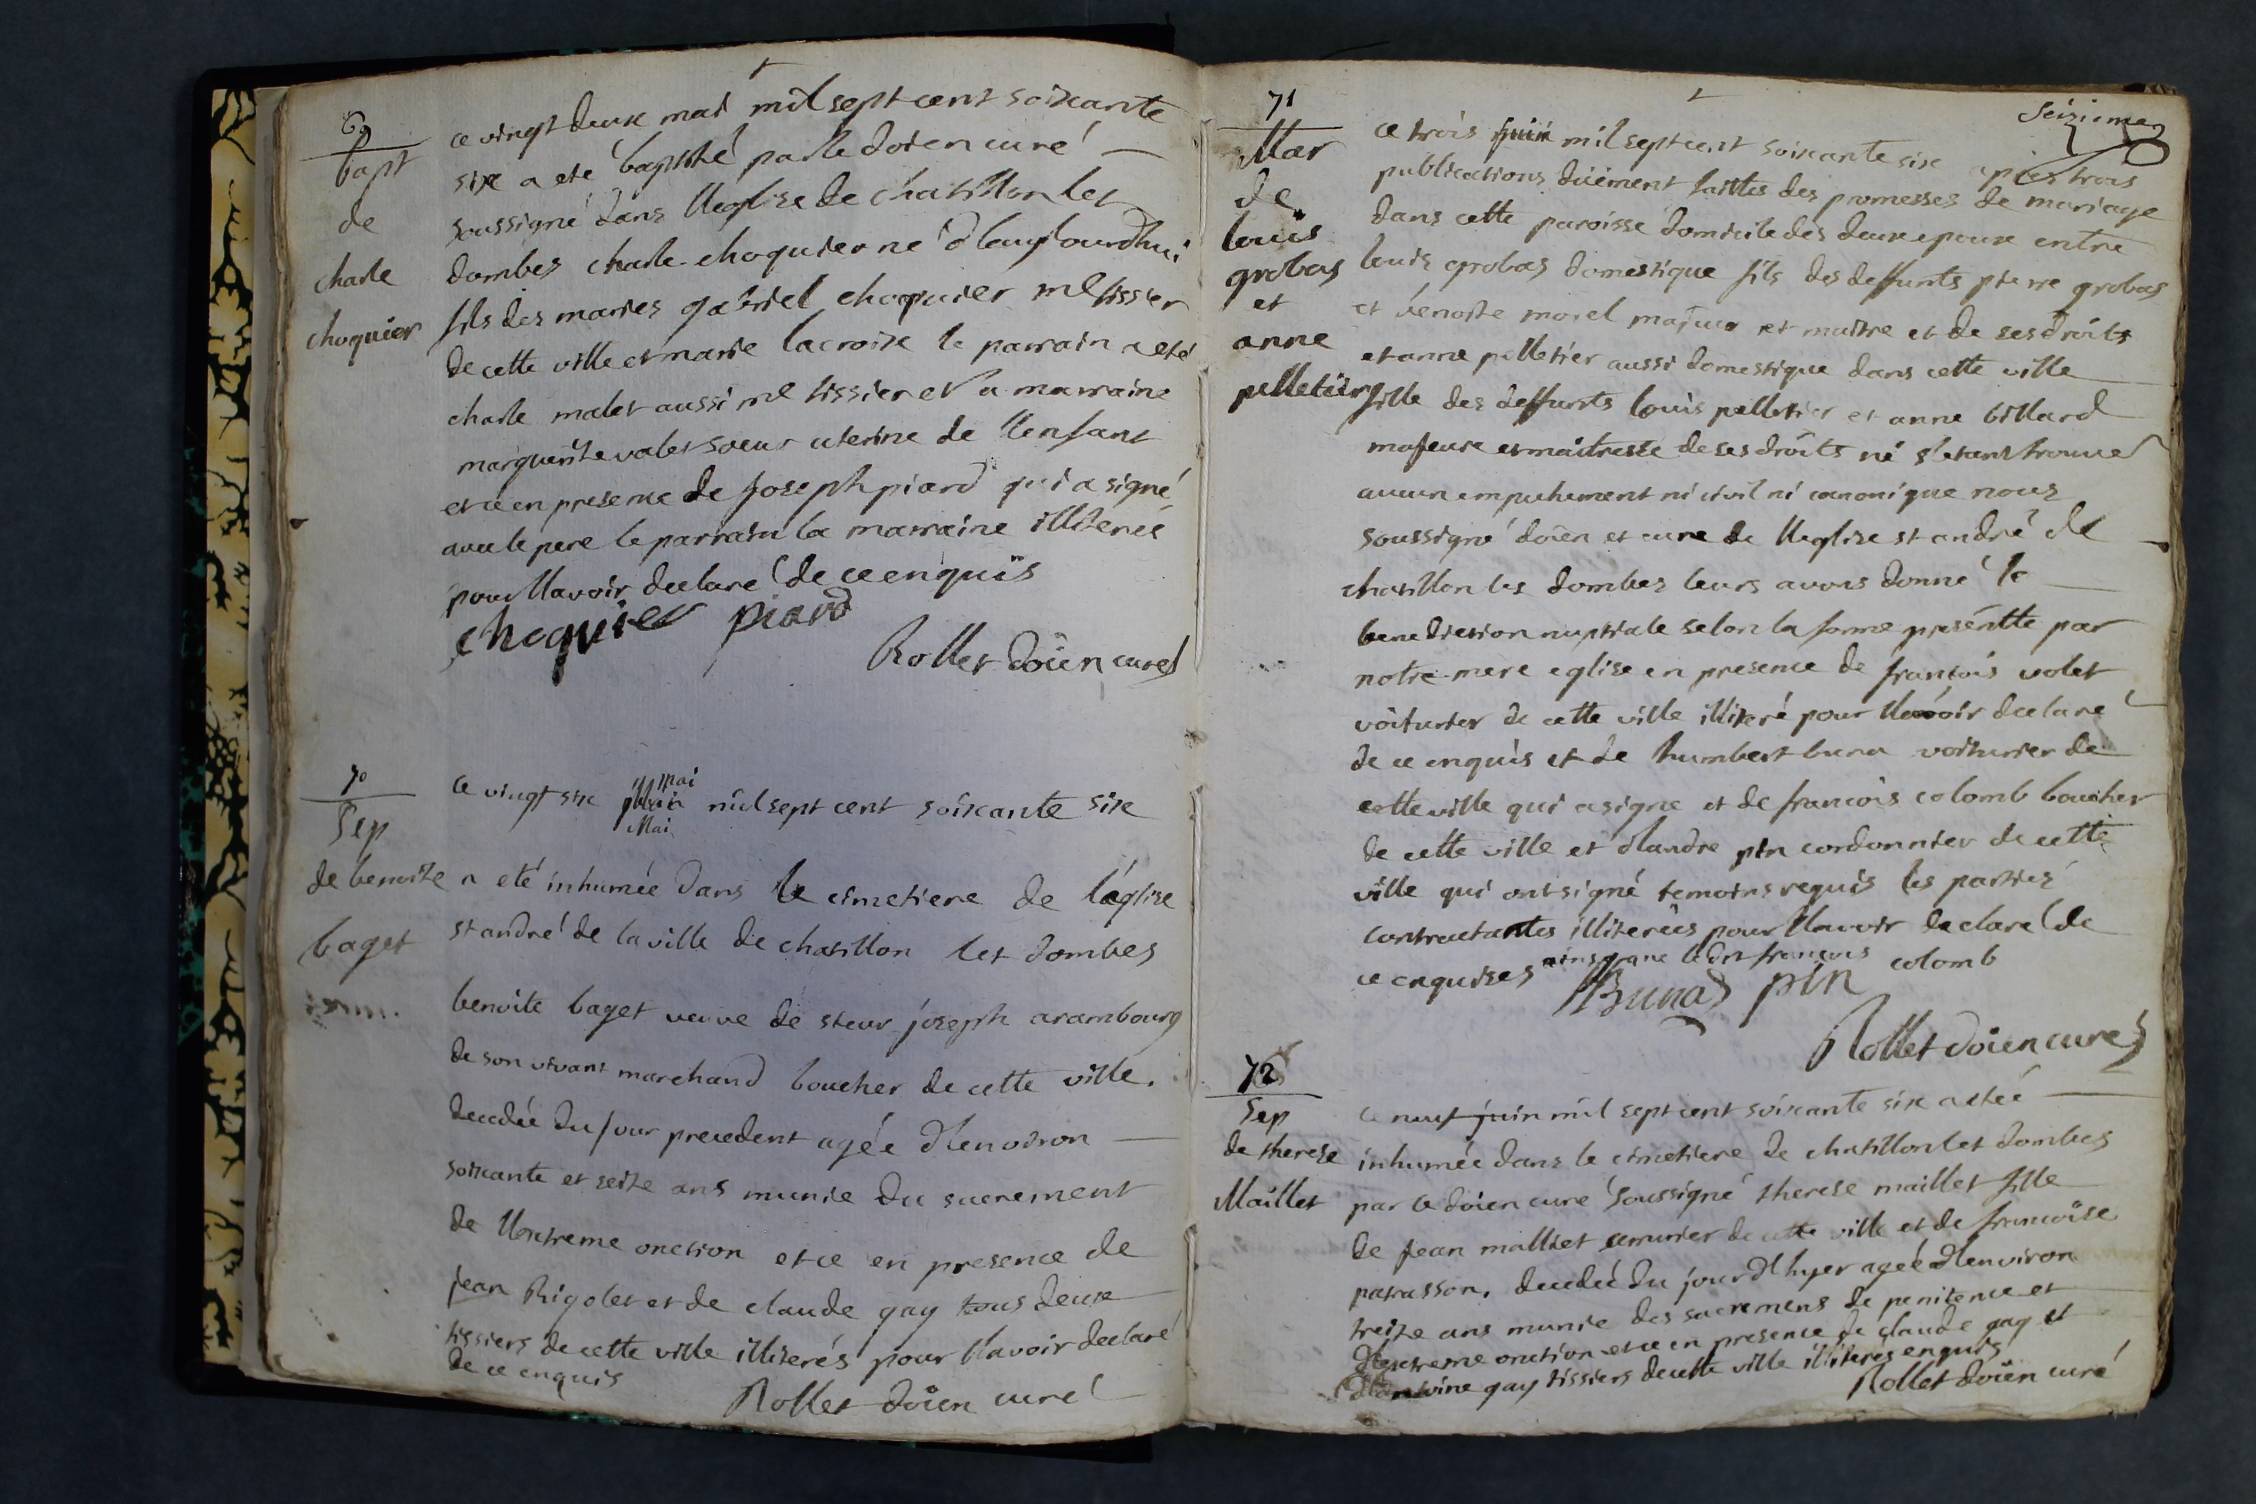 69
bapt
de
charle
choquier
ce vingt deux mai mil sept cent soixante
six a eté baptisé par le doien curé
soussigné dans lleglise de chatillon les
dombes charle choquier né dlaujourdhui
fils des maries gabriel choquier me tissier
de cette ville et marie lacroix le parrain a eté
charle malet aussi me tissier et la marraine
marguerite valet soeur uterine de llenfant
et ce en presence de joseph piard qui a signé
avec le pere le parrain la marraine illiterés
pour llavoir declaré de ce enquis
choquier piard
Rollet doïen curé
70
Sep
de benoite
baget
ce vingt six mai mil sept cent soixante six
Mai
a eté inhumée dans le cimetiere de léglise
st andré de la ville de chatillon les dombes
benoite baget veuve de sieur joseph arambourg
de son vivant marchand boucher de cette ville.
decedée du jour precedent agée dlenviron
soixante et seize ans munie du sacrement
de llextreme onction et ce en presence de
jean Rigolet et de claude gay tous deux
tissiers de cette ville illiterés pour llavoir declaré
de ce enquis
Rollet doïen curé
Seizieme
71
Mar
de
louis
grobas
et
anne
pelletier
ce trois juin mil sept cent soixante six apres trois
publications düement faittes des promesses de mariage
dans cette paroisse domicile des deux epoux entre
louis grobas domestique fils des deffunts pierre grobas
et bénoite morel majeur et maitre et de ses droits
et anne pelletier aussi domestique dans cette ville
fille des deffunts louis pelletier et anne billard
majeure et maitresse de ses droits ne s'etant trouvé
aucun empechement ni civil ni canonique nous
soussigné doïen et curé de lleglise st andré de
chatillon les dombes leurs avons donné la
benediction nuptiale selon la forme presentte par
notre mere eglise en presence de françois volet
voiturier de cette ville illiteré pour llavoir declaré
de ce enquis et de humbert buna voiturier de
cette ville qui a signé et de françois colomb boucher
de cette ville et dlandre pin cordonnier de cette
ville qui ont signé temoins requis les parties
contractantes illiterées pour llavoir declaré de
ce enquises ainsy que ledit françois colomb
Buna pin
Rollet doïen curé
72
Sep
de therese
Maillet
ce neuf juin mil sept cent soixante six a etée
inhumée dans le cimetiere de chatillon les dombes
par le doien curé soussigné therese maillet fille
de jean malliet serrurier de cette ville et de françoise
patrasson. decedée du jour dlhyer agée dlenviron
treize ans munie des sacremens de penitence et
dlextreme onction et ce en presence de claude gay et
dlantoine gay tissiers de cette ville illiterés enquis
Rollet doïen curé